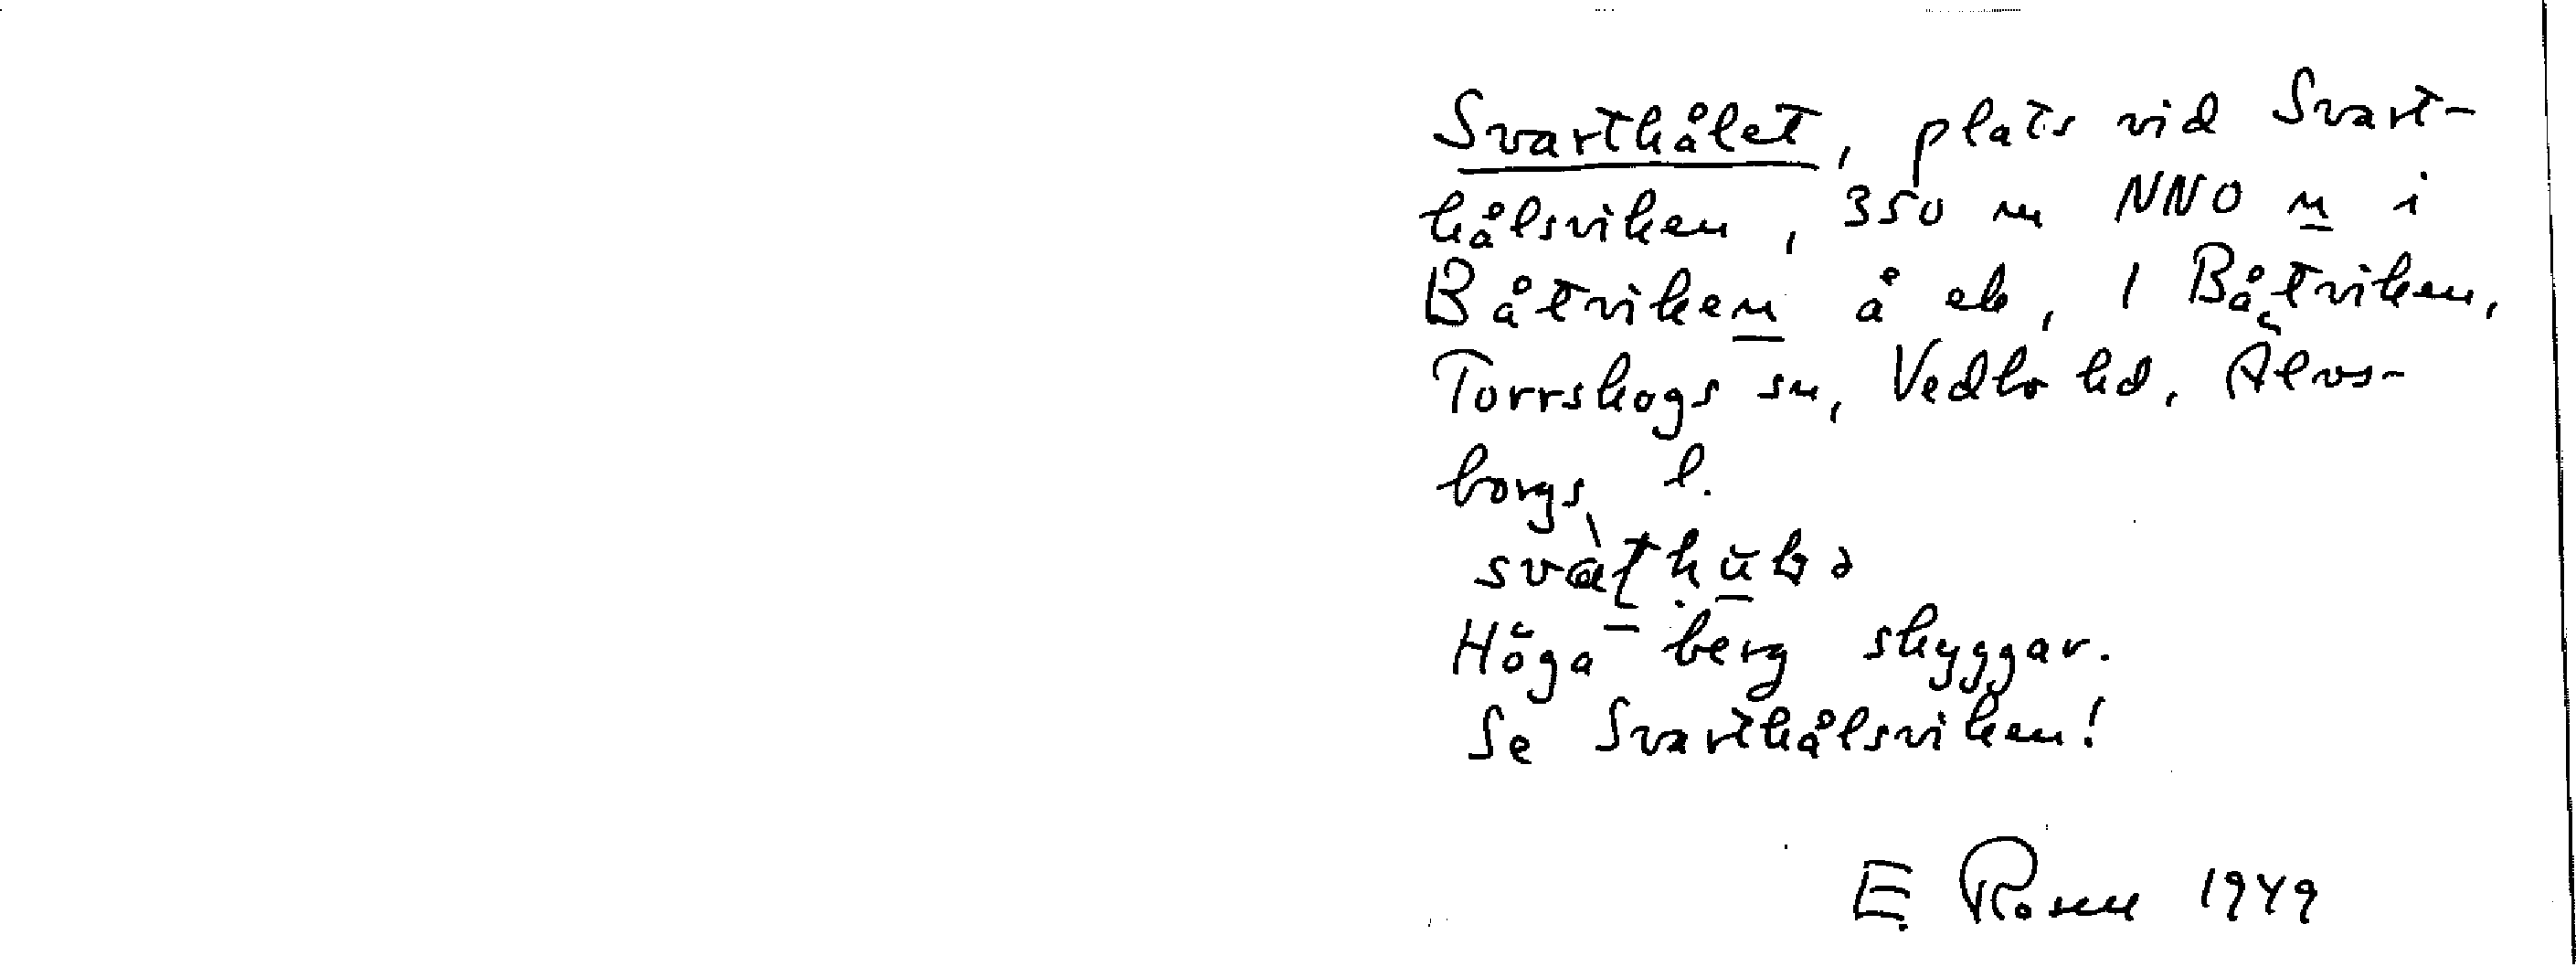 Svarthålet, plats vid Svart-
hålsviken, 350 m NNO n i
Båtviken å ek, 1 Båtviken,
Torrskogs sn, Vedbo hd, Älvs-
borgs l.
Höga berg skyggar.
Se Svarthålsviken!
E. Rosen 1949